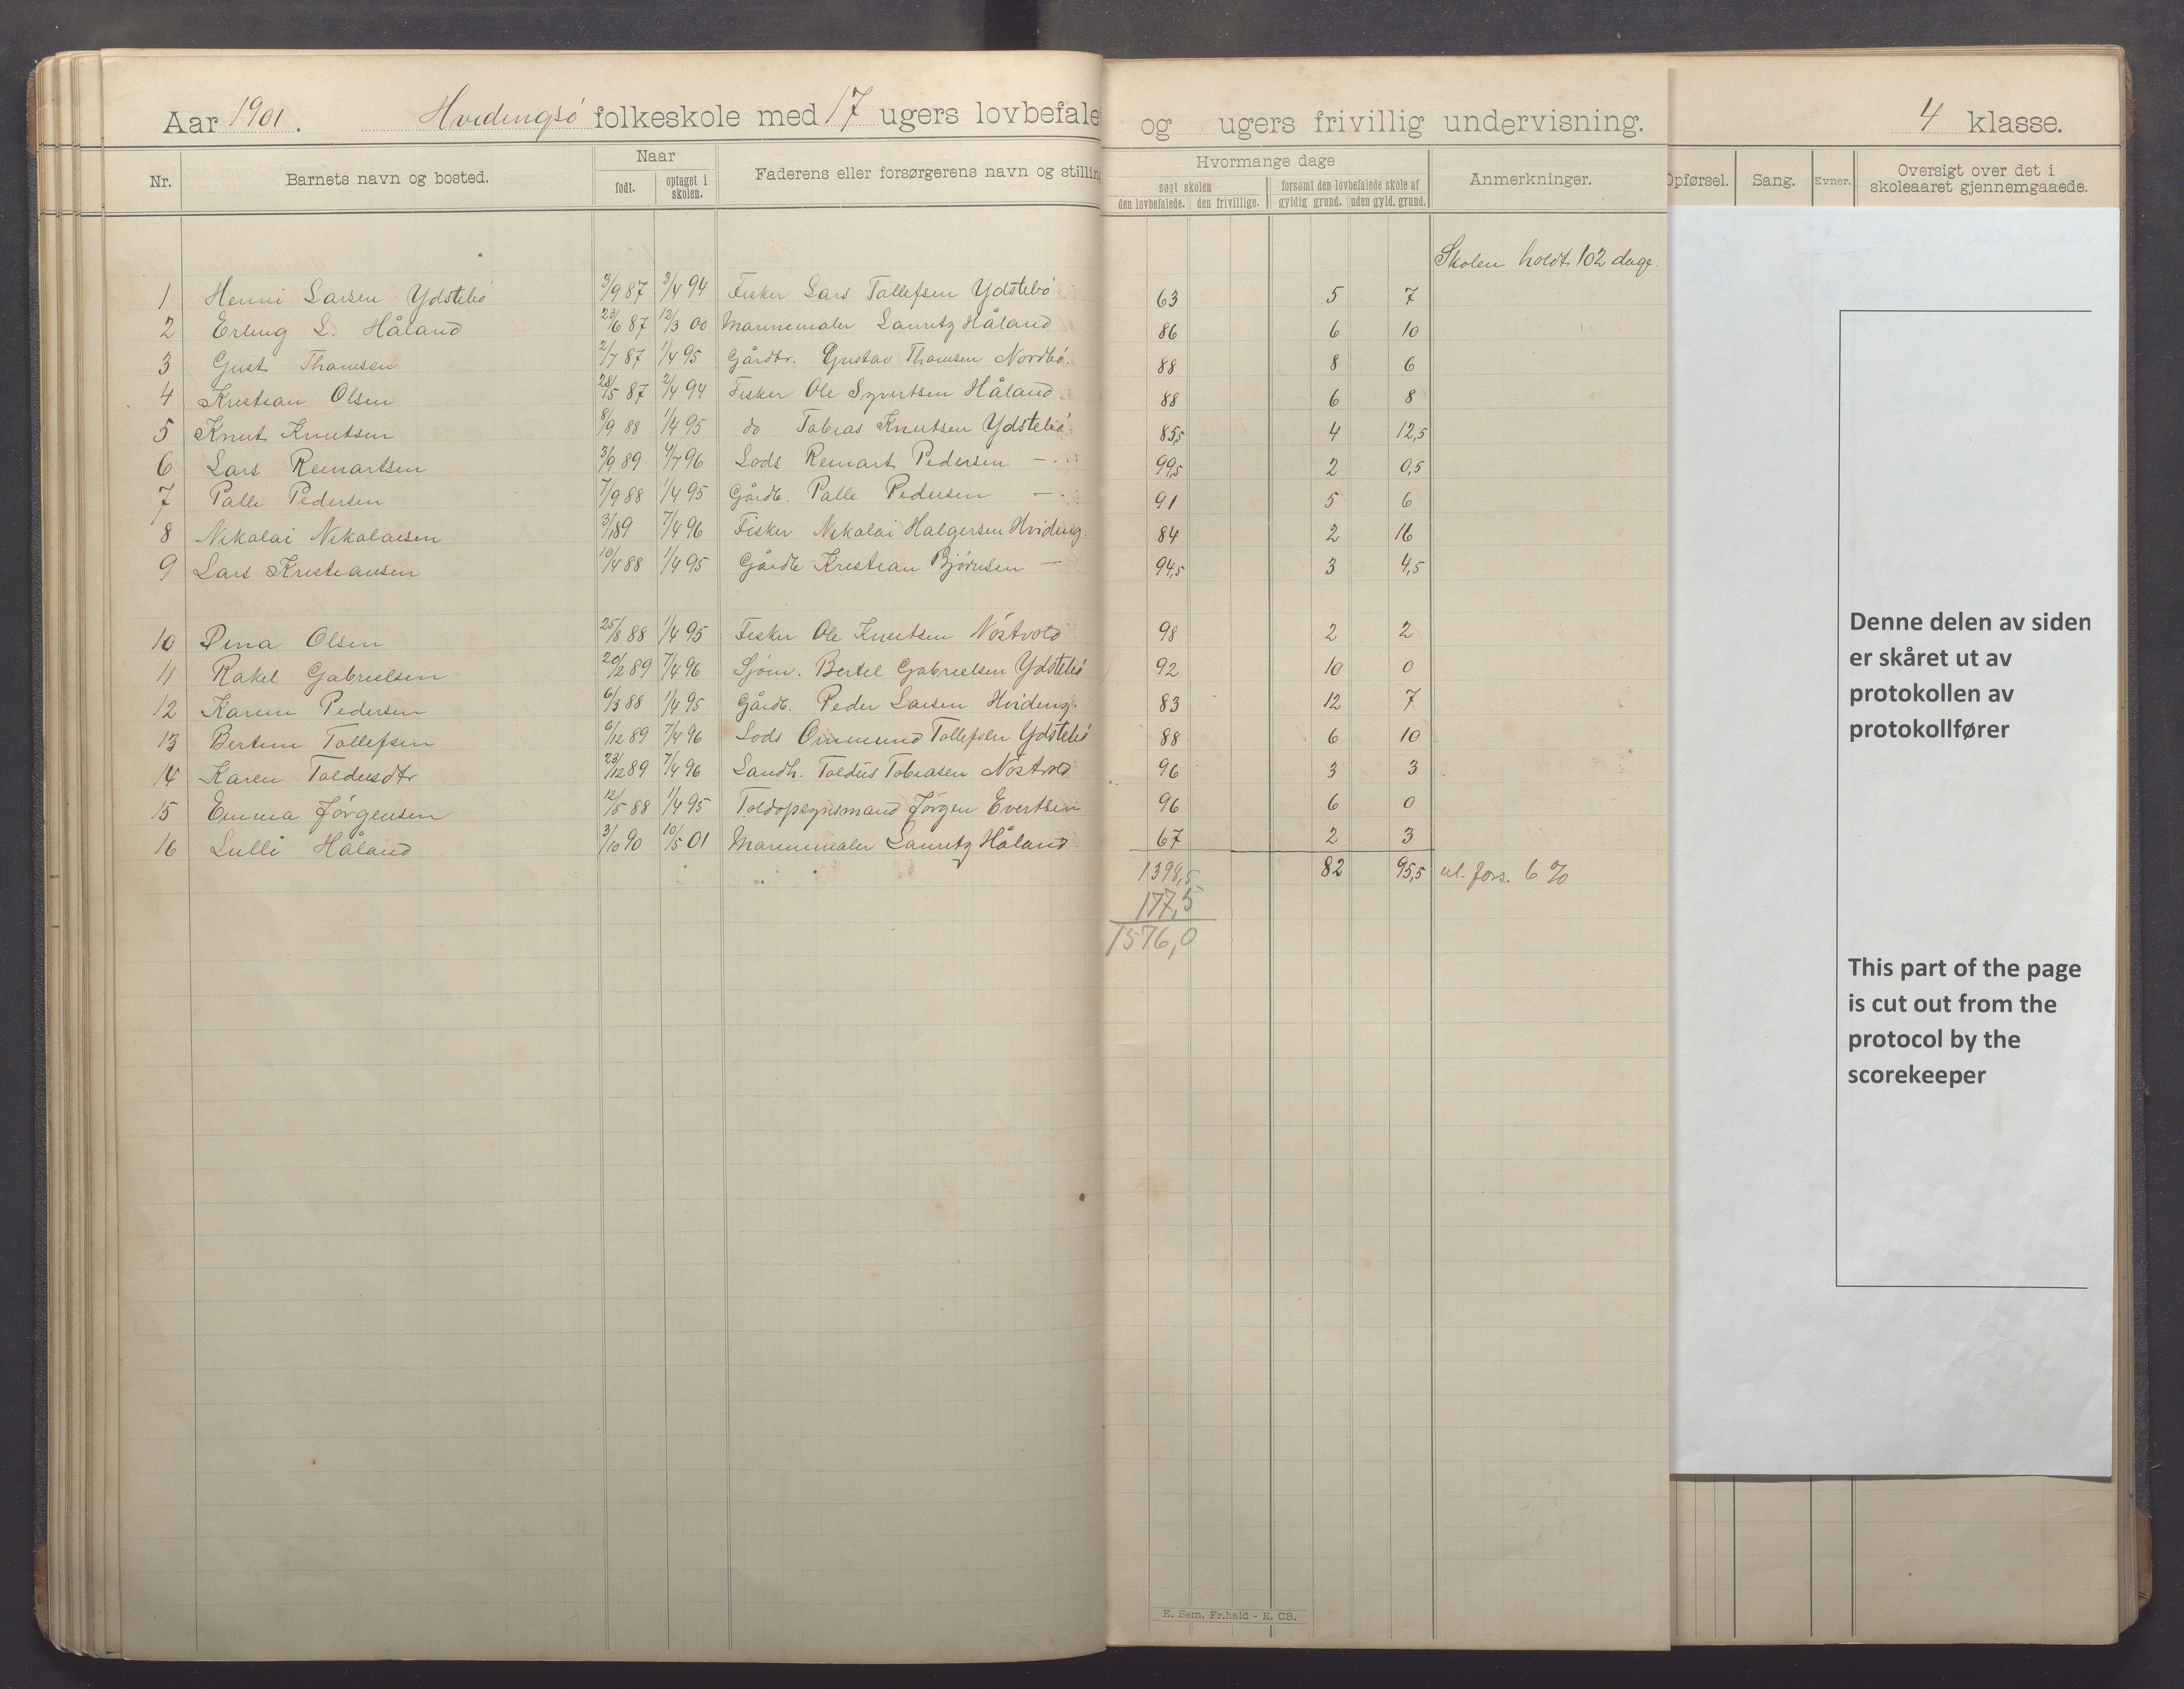 Aar 1901. Hvidingsö folkeskole med 17 ugers lovbefale og ugers frivillig undervisning. 4 klasse.
Nr. Barnets navn og bosted. Naar født. optaget i skolen. Faderens eller forsørgerens navn og stilling
Hvormange dage
søgt skolen forsømt den lovbefalede skole af
den lovbefalede. den frivillige. gyldig grund. uden gyld. grund.
Anmerkninger. Opførsel. Sang. Evner. Oversigt over det i skoleaaret gjennemgaaede.
Skolen holdt 102 dage.
1 Henni Larsen Ydstebö 3/9 87 3/4 94 Fisker Lars Tollefsen Ydstebö 63 5 7
2 Erling L. Håland 23/6 87 12/3 00 Marinemaler Lauritz Håland 86 6 10
3 Gust Thomsen 2/7 87 1/4 95 Gårdbr. Gustav Thomsen Nordbö. 88 8 6
4 Kristian Olsen 28/5 87 2/4 94 Fisker Ole Syvertsen Håland. 88 6 8
5 Knut Knutsen 8/9 88 1/4 95 do Tobias Knutsen Ydstebö 85,5 4 12,5
6 Lars Reinartsen 3/9 89 4/7 96 Lods Reinart Pedersen — 99,5 2 0,5
7 Palle Pedersen 7/9 88 1/4 95 Gårdb. Palle Pedersen — 91 5 6
8 Nikolai Nikolaisen 3/1 89 7/4 96 Fisker Nikolai Halgersen Hviding. 84 2 16
9 Lars Kristiansen 10/4 88 1/4 95 Gårdb Kristian Bjørnsen — 94,5 3 4,5
10 Dina Olsen 25/8 88 1/4 95 Fisker Ole Knutsen Nöstvold 98 2 2
11 Rakel Gabrielsen 20/2 89 7/4 96 Sjöm. Bertel Gabrielsen Ydstebö 92 10 0
12 Karen Pedersen 6/3 88 1/4 95 Gårdb. Peder Larsen Hviding. 83 12 7
13 Bertine Tollefsen 6/12 89 7/4 96 Lods Ommund Tollefsen Ydstebö 88 6 10
14 Karen Toldusdtr 23/12 89 7/4 96 Landh. Toldüs Tobiasen Nöstvold 96 3 3
15 Emma Jörgensen 12/5 88 1/4 95 Toldopsynsmand Jörgen Evertsen 96 6 0
16 Lulli Håland 3/10 90 10/5 01 Marinemaler Lauritz Håland 67 2 3
1398,5 82 95,5 ul. fors. 6 %
177,5
1576,0
Denne delen av siden
er skåret ut av
protokollen av
protokollfører
This part of the page
is cut out from the
protocol by the
scorekeeper
E. Sem, Fr.hald - E. CB.